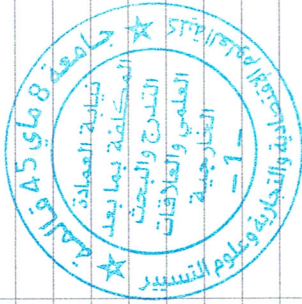 جامعة 8 ماي 45 قالمة
كلية العلوم الاقتصادية والتجارية وعلوم التسيير
نيابة العمادة
المكلفة بما بعد
التدرج والبحث
العلمي والعلاقات
الخارجية
-1-